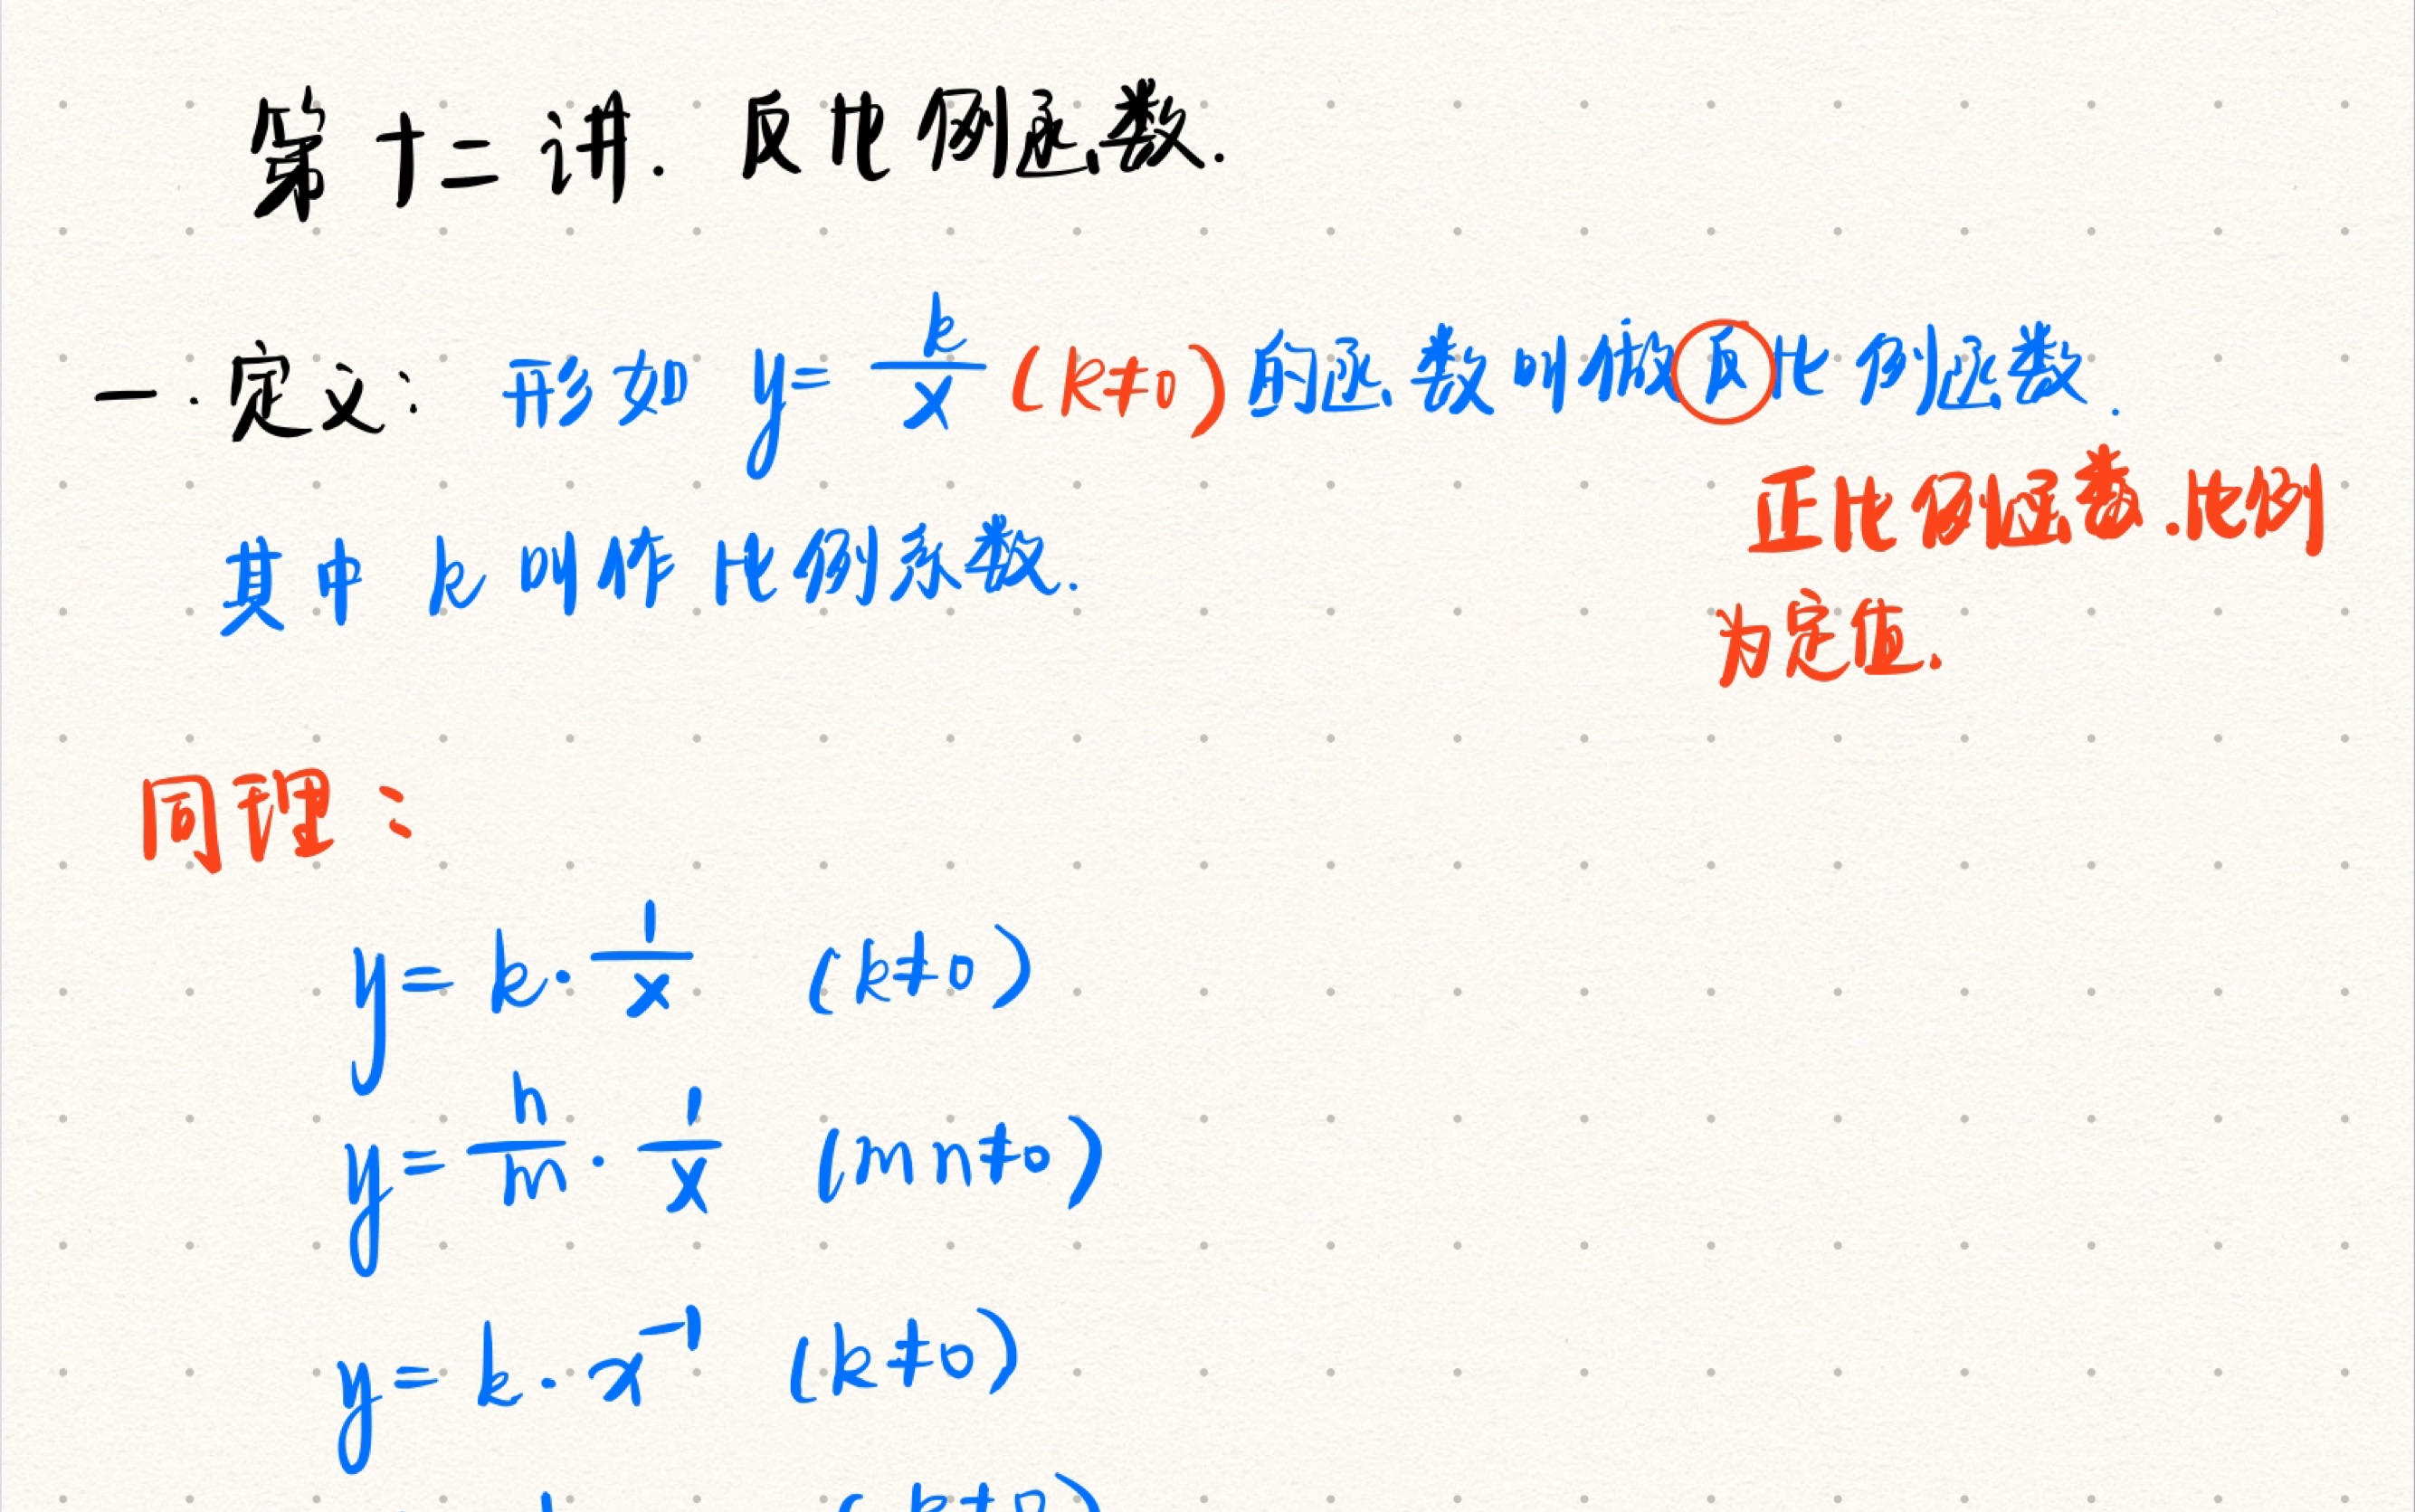 第十二讲. 反比例函数.
一. 定义: 形如 y = k/x (k≠0) 的函数叫做反比例函数.
正比例函数. 比例
为定值.
其中 k 叫作比例系数.
同理:
y = k · 1/x (k≠0)
y = n/m · 1/x (mn≠0)
y = k · x⁻¹ (k≠0)
(k≠0)